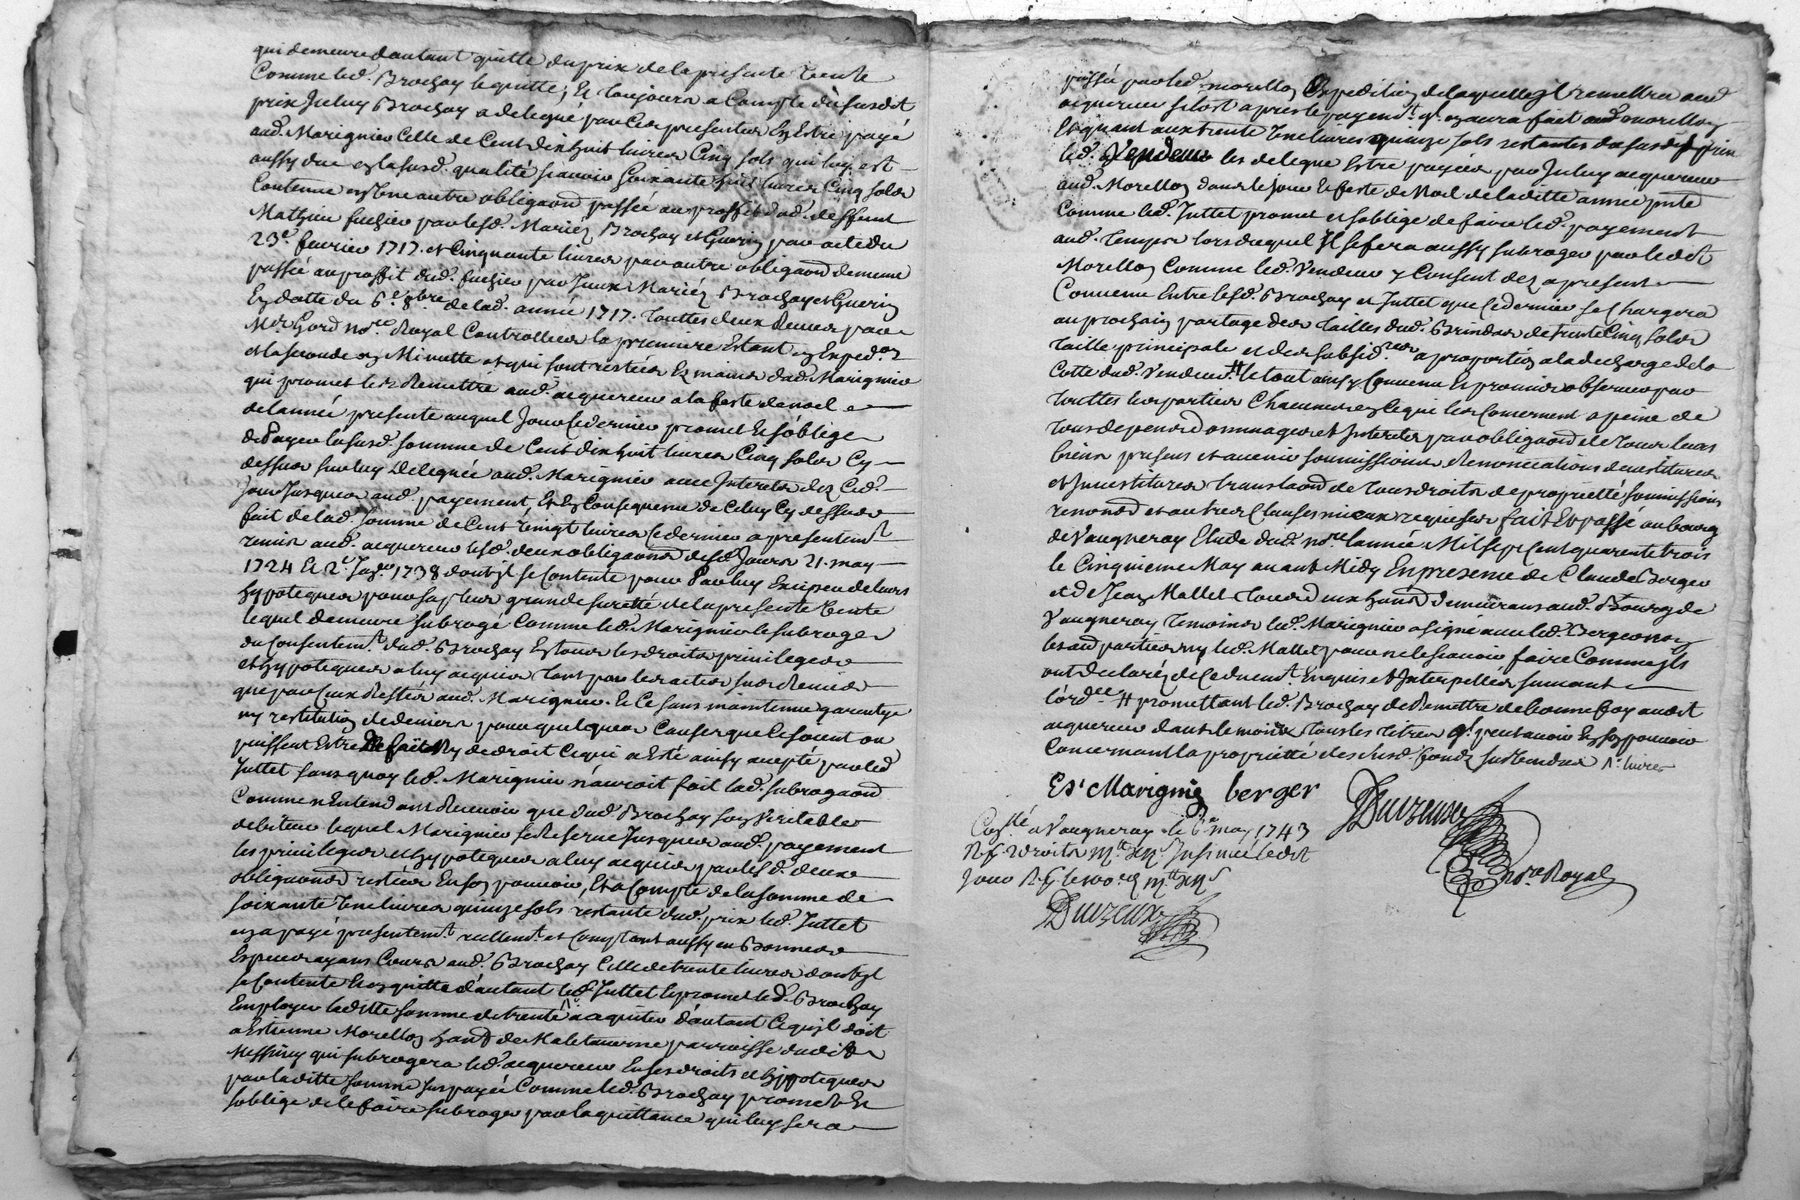 qui demeure dautant quitte du prix de la presente vente
Comme led. Brochay le quitte; Et toujours a Compte du susdit
prix Iceluy Brochay a delegué par ces presentes Estre payé
aud. Marignier Celle de Cent dix huit livres Cinq sols qui luy est
aussy due en la susd. qualité scavoir soixante huit livres Cinq solds
Contenue en une autre obligaond passée au proffit dud. deffunt
Mathieu fuchier par lesd. Mariéz Brochay et Guerin par acte du
23e. fevrier 1717. et Cinquante livres par autre obligaond de meme
passée au proffit dud. fuchier par Iceux Mariéz Brochay et Guerin
En datte du 6e. 8bre. de lad. année 1717. touttes deux Receues par
Me Gord nore. Royal Controllées la premiere Estant en Exped.on
et la seconde en Minutte et qui sont restées Ez mains dud. Marignier
qui promet les Remettre aud. acquereur a la feste de noel
de lannée presente auquel Jour Ce dernier promet Et soblige
de Payer la susd. somme de Cent dix huit livres Cinq solds Cy
dessus sur luy deleguée aud. Marignier avec Interets dez Ced.
Jour Jusques aud. payement, Et En Consequence de Celuy Cy dessus
fait de lad. somme de Cent vingt livres Ce dernier a presentemt.
remis aud. acquereur lesd. deux obligaonds desd. Jours 21. may
1724 Et 2e. Janv.er 1738 dont Il se Contente pour Par luy Exciper de leurs
hypoteques pour sa plus grande suretté de la presente Vente
lequel demeure subrogé Comme led. Marignier le subroge
du Consentemt. dud. Brochay En tous les droits privileges
et hypoteques a luy acquis tant par les actes sus Recus
que par Ceux Restés aud. Marignier. Et Ce sans maintenue garentye
ny restitution de deniers pour quelques Causes que Ce soient ou
puissent Estre de fait Ny de droit Ce qui a Esté ainsy accepté par led.
Juttet sans quoy led. Marignier n'auroit fait lad. subrogaond
Comme nEntendant Recevoir que dud. Brochay son veritable
debiteur lequel Marignier se Reserve Jusques aud. payement
les privileges et hypoteques a luy acquis par lesd. deux
obligaonds restées En son pouvoir, Et a Compte de la somme de
soixante Une livres quinze sols restante dud. prix led. Juttet
en a payé presentemt. reellemt. et Comptant aussy en Bonnes
Especes ayans Cours aud. Brochay Celle de trente livres dont Il
se Contente Et en quitte d'autant led. Juttet Et promet led. Brochay
Employer laditte somme de trente a aquiter d'autant Ce quil doit
a Estienne Morellon habt. de Maletaverne parroisse dudit
Messimy qui subrogera led. acquereur En ses droits et hypoteques
pour laditte somme sus payée Comme led. Brochay promet Et
soblige de le faire subroger par la quittance qui luy sera
passée par led. morellon Expedition de laquelle Il remettra aud.
acquereur sitost apres le payemt. q'il en aura fait aud. morellon
Et quant aux trente Une livres quinze sols restantes du susdit prix
led. Vendeur les delegue Estre payées par Iceluy acquereur
aud. Morellon dans le Jour Et feste de Noel de laditte année pnte
Comme led. Juttet promet et soblige de faire led. payement
aud. temps lors duquel Il se fera aussy subroger par ledit
Morellon Comme led. Vendeur y Consent dez a present
Convenu Entre lesd. Brochay et Juttet que Ce dernier se Chargera
au prochain partage des tailles dud. Brindas de trente Cinq solds
taille principale et des subsid.res a proportion a la decharge de la
Cotte dud. Vendeur. # le tout ainsy Convenu Et promis observer par
touttes les parties Chacunes en Ce qui les Concernent a peine de
tous depens dommages et Interets par obligaond de tous leurs
biens presens et avenir soumissions Renonciations devestitures
et Investitures translaond de tous droits de proprietté soumissions
renonaod et autres Clauses mieux requises fait Et passé au bourg
de Vaugneray Etude dud. nore. lannée Mil sept Cent quarente trois
le Cinquieme May avant Midy En presence de Claude Berger
et de Jean Mallet tous deux habts. demeurans aud. Bourg de
Vaugneray temoins led. Marignier a signé avec led. Berger non
lesd. parties ny led. Mallet pour ne le scavoir faire Comme Ils
ont declaré de Ce duemt. Enquis et Interpellés suivant
lord.ce # promettant led. Brochay de Remettre de bonne foy audit
acquereur dans le mois tous les titres q'il peut avoir En son pouvoir
Concernant la proprietté des susd. fonds sus Vendus
Es. Marignie berger Duvzeux nore. Royal
Conllé. a Vaugneray le 6e. may 1743
R. f. droits
Jour
Duvzeux